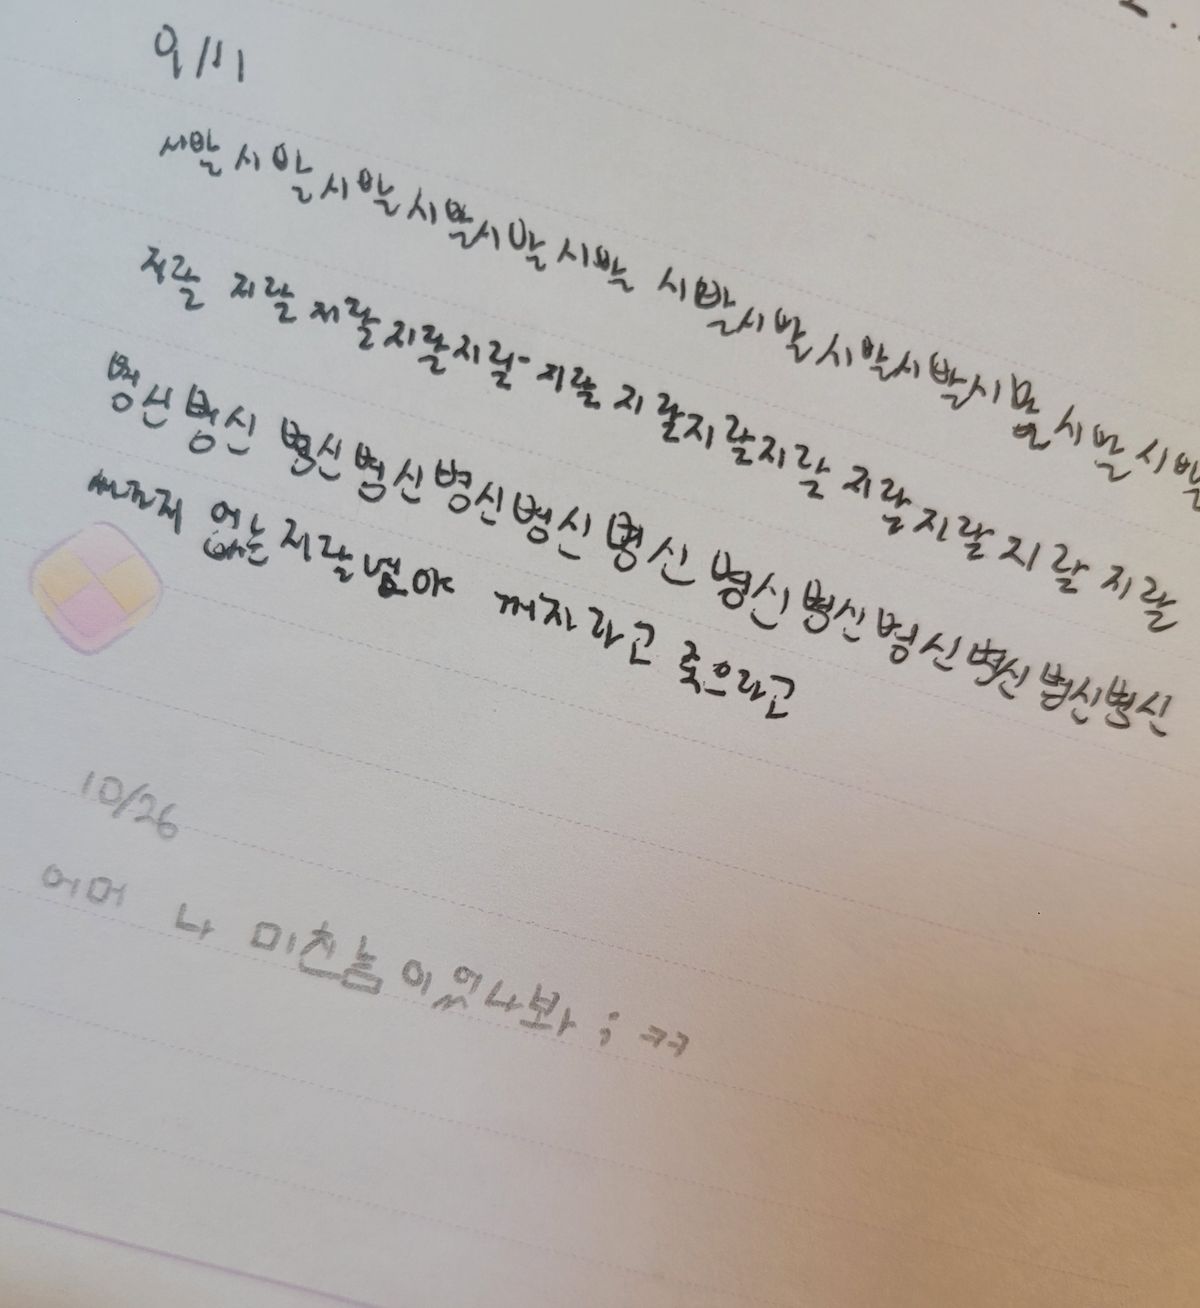 9/11
시발 시발 시발 시발시발 시발 시발시발 시발시발시발 시발 시발
지랄 지랄 지랄지랄지랄- 지랄 지랄지랄지랄 지랄지랄 지랄 지랄
병신병신 병신병신병신병신 병신 병신병신병신병신병신병신
싸가지 없는 지랄년아 꺼지라고 죽으라고
10/26
어머 나 미친놈이었나봐 ; ㅋㅋ